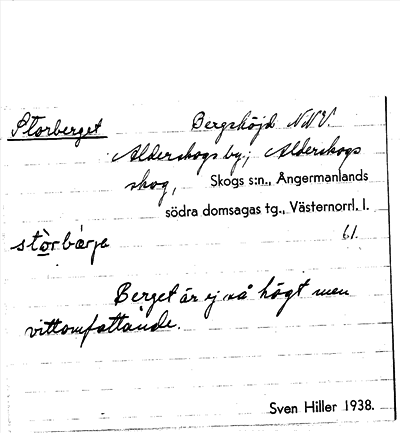 Storberget Bergshöjd NNV.
Alderskogs by; Alderskogs
skog, Skogs s:n., Ångermanlands
södra domsagas tg., Västernorrl. l.
stòrbærje 61.
Berget är ej så högt men
vittomfattande.
Sven Hiller 1938.